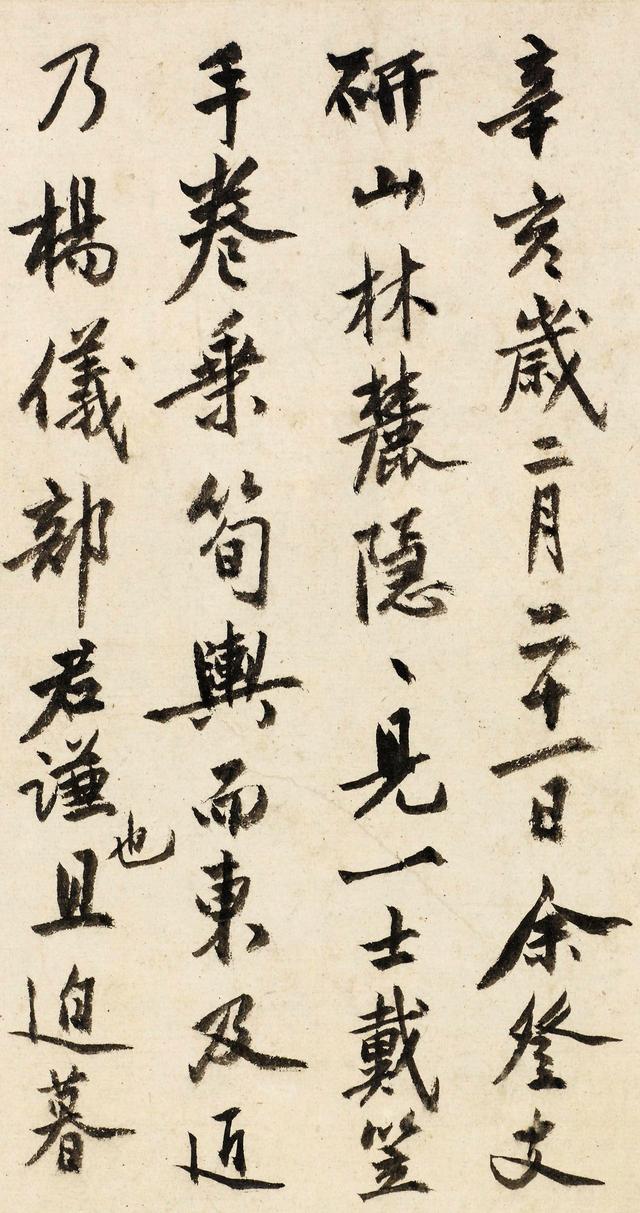 辛亥歲二月二十一日余登支
研山林麓隱、見一士戴笠
手卷乗筍輿而東及近
乃楊儀部君謙也且迫暮